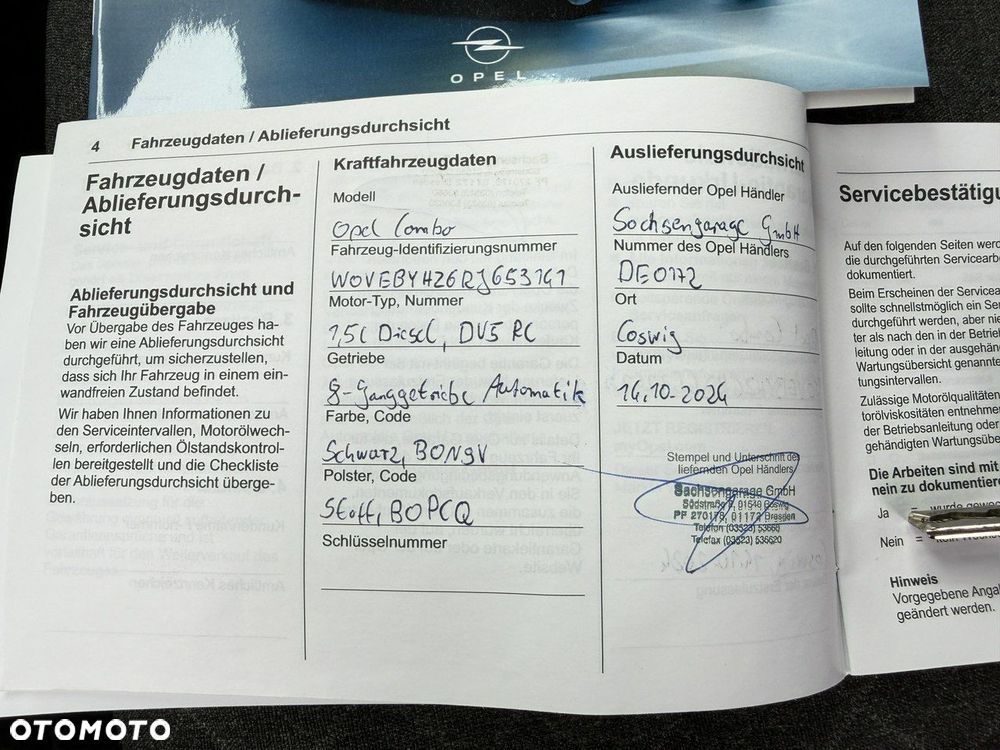 OPEL
4 Fahrzeugdaten / Ablieferungsdurchsicht
Fahrzeugdaten /
Ablieferungsdurch-
sicht
Ablieferungsdurchsicht und
Fahrzeugübergabe
Vor Übergabe des Fahrzeuges ha-
ben wir eine Ablieferungsdurchsicht
durchgeführt, um sicherzustellen,
dass sich Ihr Fahrzeug in einem ein-
wandfreien Zustand befindet.
Wir haben Ihnen Informationen zu
den Serviceintervallen, Motorölwech-
seln, erforderlichen Ölstandskontrol-
len bereitgestellt und die Checkliste
der Ablieferungsdurchsicht überge-
ben.
Kraftfahrzeugdaten
Modell
Opel Combo
Fahrzeug-Identifizierungsnummer
W0VEBYHZ6RJ653161
Motor-Typ, Nummer
1,5l Diesel, DV5 RC
Getriebe
8-Janggetriebe Automatik
Farbe, Code
Schwarz, BON9V
Polster, Code
Stoff, BOPCQ
Schlüsselnummer
Auslieferungsdurchsicht
Ausliefernder Opel Händler
Sachsengarage GmbH
Nummer des Opel Händlers
DE0172
Ort
Coswig
Datum
14.10.2024
Stempel und Unterschrift des
liefernden Opel Händlers
Sachsengarage GmbH
Südstraße 01640 Coswig
PF 270178, 01172 Dresden
Telefon (03523) 53660
Telefax (03523) 536620
Servicebestätigu
Auf den folgenden Seiten werd
die durchgeführten Servicearbe
dokumentiert.
Beim Erscheinen der Servicea
sollte schnellstmöglich ein Ser
durchgeführt werden, aber nie
ter als nach den in der Betrieb
leitung oder in der ausgehän
Wartungsübersicht genannte
tungsintervallen.
Zulässige Motorölqualitäten
torölviskositäten entnehme
der Betriebsanleitung oder
gehändigten Wartungsübe
Die Arbeiten sind mit
nein zu dokumentiere
Ja
Nein =
Hinweis
Vorgegebene Angab
geändert werden.
OTOMOTO